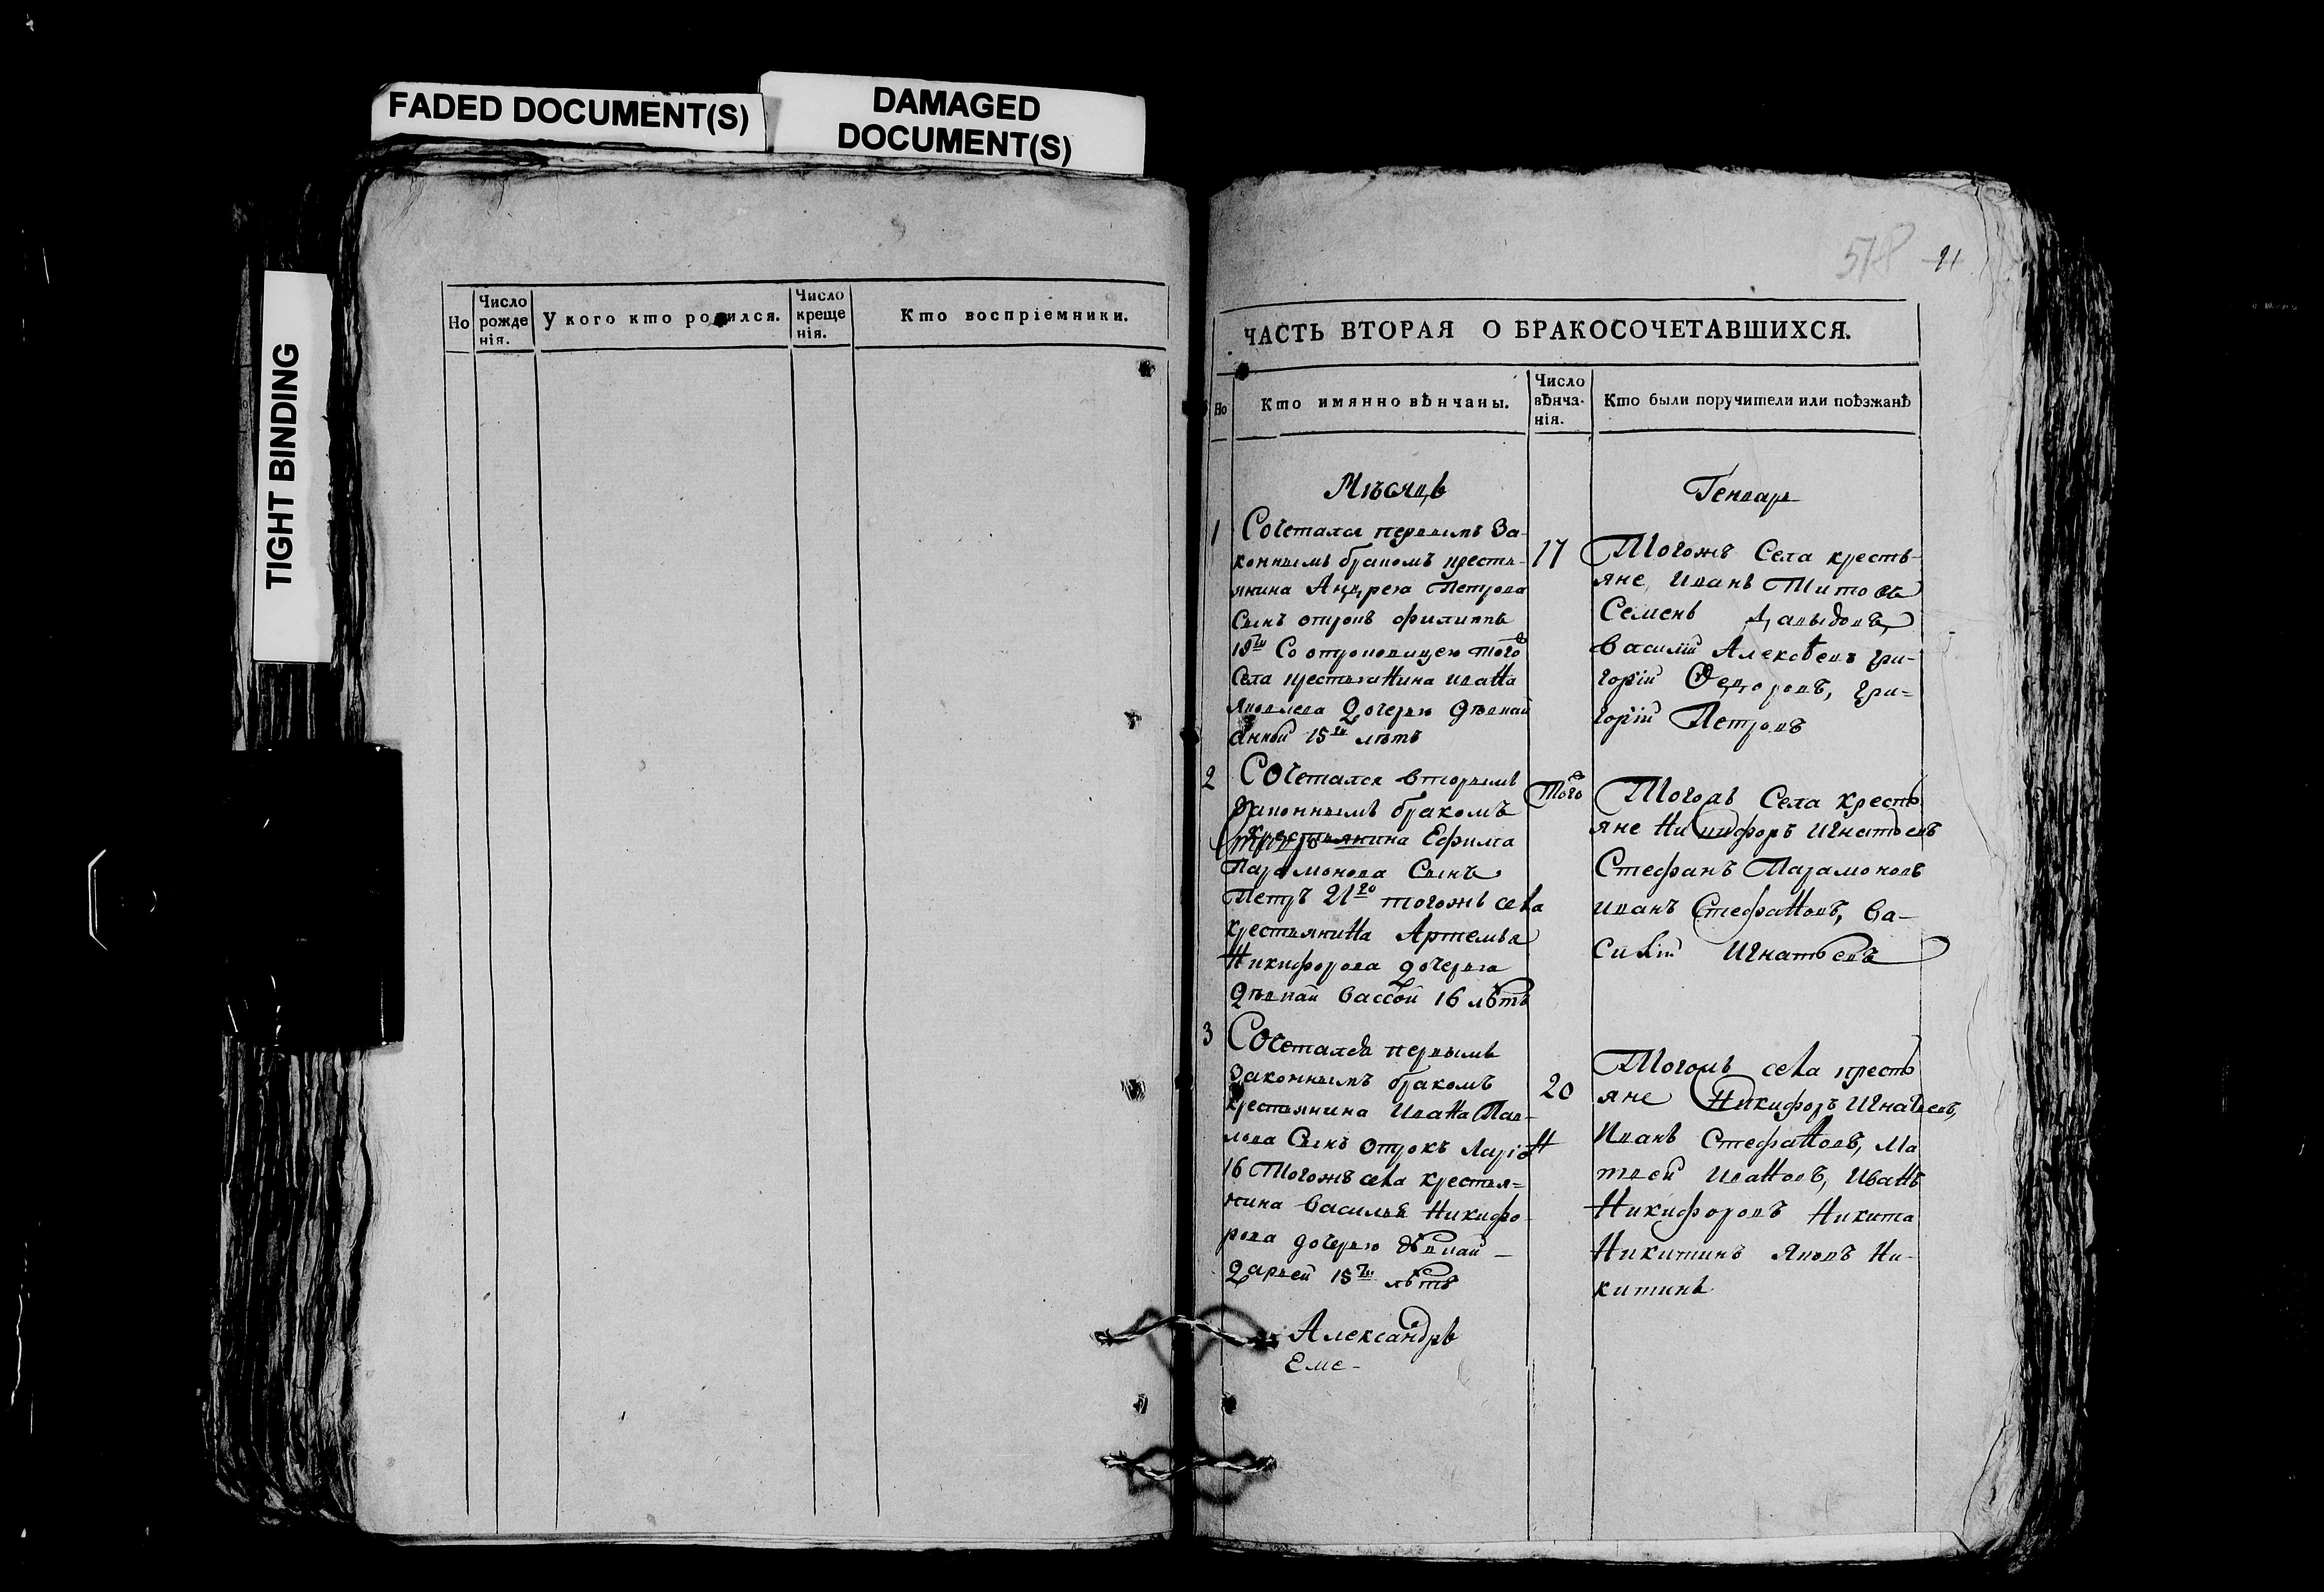 FADED DOCUMENT(S)
DAMAGED
DOCUMENT(S)
TIGHT BINDING
Но
Число
рожде
нія.
У кого кто родился.
Число
креще
нія.
Кто воспріемники.
518
21
ЧАСТЬ ВТОРАЯ О БРАКОСОЧЕТАВШИХСЯ.
Но
Кто имянно вѣнчаны.
Число
вѣнча-
нія.
Кто были поручители или поѣзжанѣ
Мѣсяцъ
Генварь
1
Сочетался первымъ за-
коннымъ бракомъ кресть-
янина Андрея Петрова
Сынъ отрокъ Филиппъ
Со отроковицею того ж
Села крестьянина Ивана
Яковлева Дочерью дѣвкай
Анной 15ти лѣтъ
17
Тогожъ Села кресть-
яне Иванъ Титовъ
Семенъ Давыдовъ,
Василій Алексѣевъ Гри-
горій Ѳедоровъ, Гри-
горій Петровъ
2
Сочетался вторымъ
Законнымъ бракомъ
Ефима
Парамонова Сынъ
Петръ 21го тогожъ села
крестьянина Артемья
Никифорова дочерью
Дѣвкай Вассой 16 лѣтъ
Того ж
Тогожъ Села кресть
яне Никифоръ Игнатьевъ
Стефанъ Парамоновъ
Иванъ Стефановъ, Ва-
силій Игнатьевъ
3
Сочетался первымъ
Законнымъ бракомъ
крестьянина Ивана Пав-
лова Сынъ Отрокъ Ларіон
16 Тогожъ села крестья-
нина Василья Никифо-
рова дочерью дѣвкай
Дарьей 15ти лѣтъ
20
Тогожъ села кресть
яне Никифоръ Игнатьевъ,
Иванъ Стефановъ, Ма
твей Ивановъ, Иванъ
Никифоровъ Никита
Никитинъ Яковъ Ни-
китинъ
Александръ
Еме-